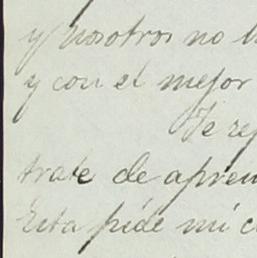 y nosotros no
y con el mejor
Te
trate de apren
Esta pide mi